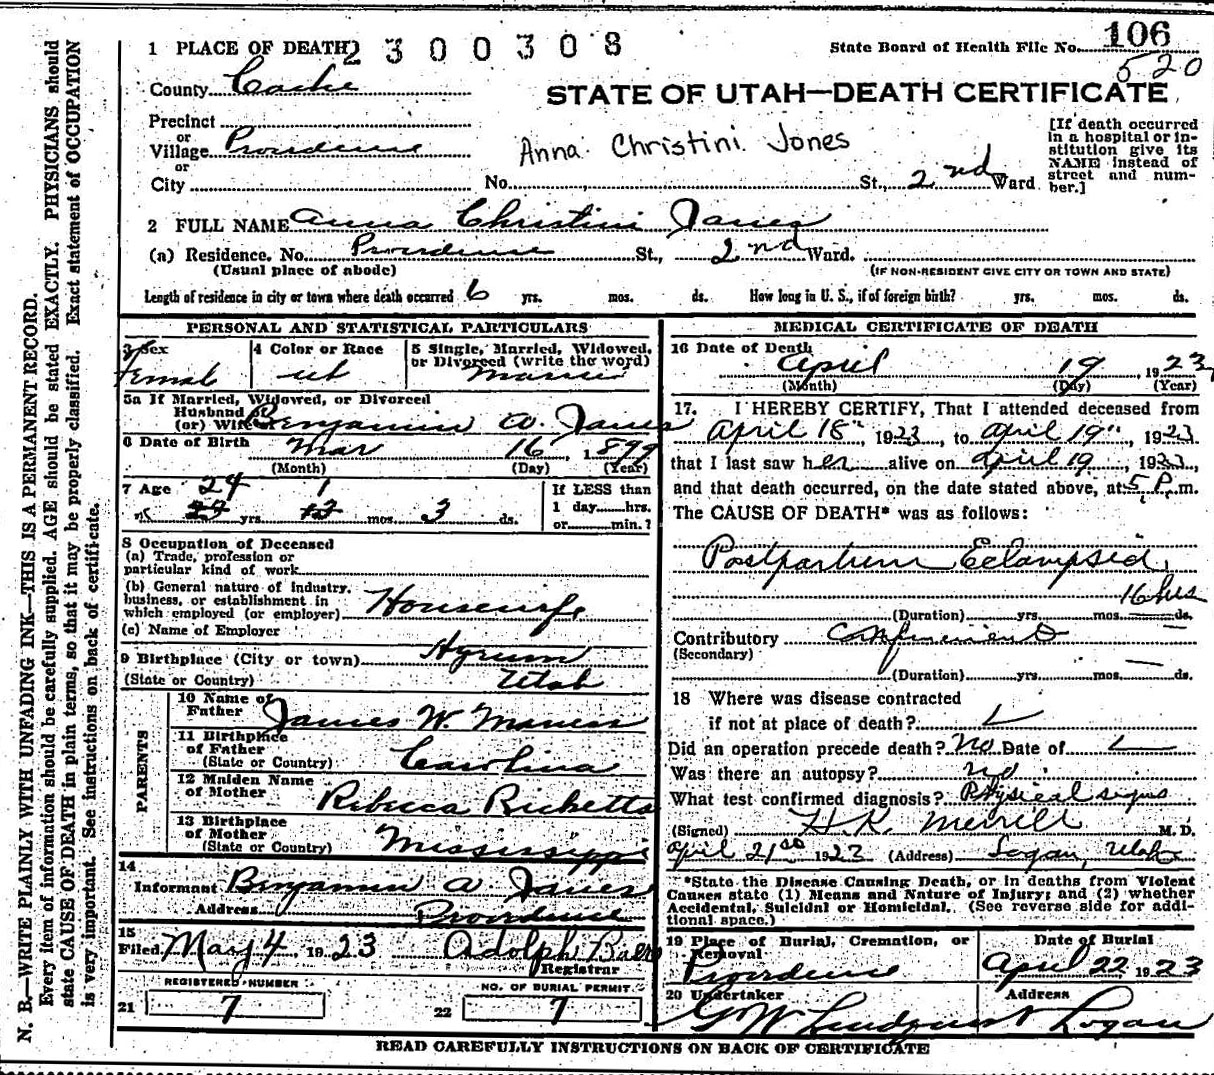 1 PLACE OF DEATH
2300308
State Board of Health File No. 106
520
County Cache
STATE OF UTAH—DEATH CERTIFICATE
Precinct
or
Village Providence
or
City
Anna Christini Jones
No. St., 2nd Ward
[If death occurred in a hospital or institution give its NAME instead of street and number.]
2 FULL NAME Anna Christini Jones
(a) Residence. No. Providence St., 2nd Ward.
(Usual place of abode)
(IF NON-RESIDENT GIVE CITY OR TOWN AND STATE)
Length of residence in city or town where death occurred 6 yrs. mos. ds. How long in U. S., if of foreign birth? yrs. mos. ds.
PERSONAL AND STATISTICAL PARTICULARS
3 Sex
Femal
4 Color or Race
5 Single, Married, Widowed, or Divorced (write the word)
5a If Married, Widowed, or Divorced
Husband of
(or) Wife Benjamin W. Jones
6 Date of Birth Mar 16, 1899
(Month) (Day) (Year)
7 Age 24 1
yrs. mos. 3 ds.
If LESS than
1 day hrs.
or min.?
8 Occupation of Deceased
(a) Trade, profession or
particular kind of work
(b) General nature of industry,
business, or establishment in
which employed (or employer) Housewife
(c) Name of Employer
9 Birthplace (City or town) Hyrum
(State or Country) Utah
PARENTS
10 Name of
Father James W.
11 Birthplace
of Father
(State or Country) Carolina
12 Maiden Name
of Mother Rebecca Ricketts
13 Birthplace
of Mother
(State or Country) Mississippi
14
Informant Benjamin W Jones
Address Providence
15
Filed May 4, 1923 Adolph Baer
Registrar
REGISTERED NUMBER
21 7
NO. OF BURIAL PERMIT
22 7
MEDICAL CERTIFICATE OF DEATH
16 Date of Death
April 19, 1923
(Month) (Day) (Year)
17. I HEREBY CERTIFY, That I attended deceased from
April 18", 1923, to April 19", 1923
that I last saw her alive on April 19, 1923,
and that death occurred, on the date stated above, at 5 P.m.
The CAUSE OF DEATH* was as follows:
Postpartum Eclampsia
16 hrs
(Duration) yrs. mos. ds.
Contributory Confinement
(Secondary)
(Duration) yrs. mos. ds.
18 Where was disease contracted
if not at place of death?
Did an operation precede death? No Date of
Was there an autopsy? no
What test confirmed diagnosis? Physical signs
(Signed) H.K. Merrill M. D.
April 21st 1923 (Address) Logan, Utah
*State the Disease Causing Death, or in deaths from Violent
Causes state (1) Means and Nature of Injury; and (2) whether
Accidental, Suicidal or Homicidal. (See reverse side for addi-
tional space.)
19 Place of Burial, Cremation, or Removal
Providence
Date of Burial
April 22 1923
20 Undertaker
G W Lindquist
Address
Logan
READ CAREFULLY INSTRUCTIONS ON BACK OF CERTIFICATE
N. B.—WRITE PLAINLY WITH UNFADING INK—THIS IS A PERMANENT RECORD.
Every item of information should be carefully supplied. AGE should be stated EXACTLY. PHYSICIANS should
state CAUSE OF DEATH in plain terms, so that it may be properly classified. Exact statement of OCCUPATION
is very important. See instructions on back of certificate.